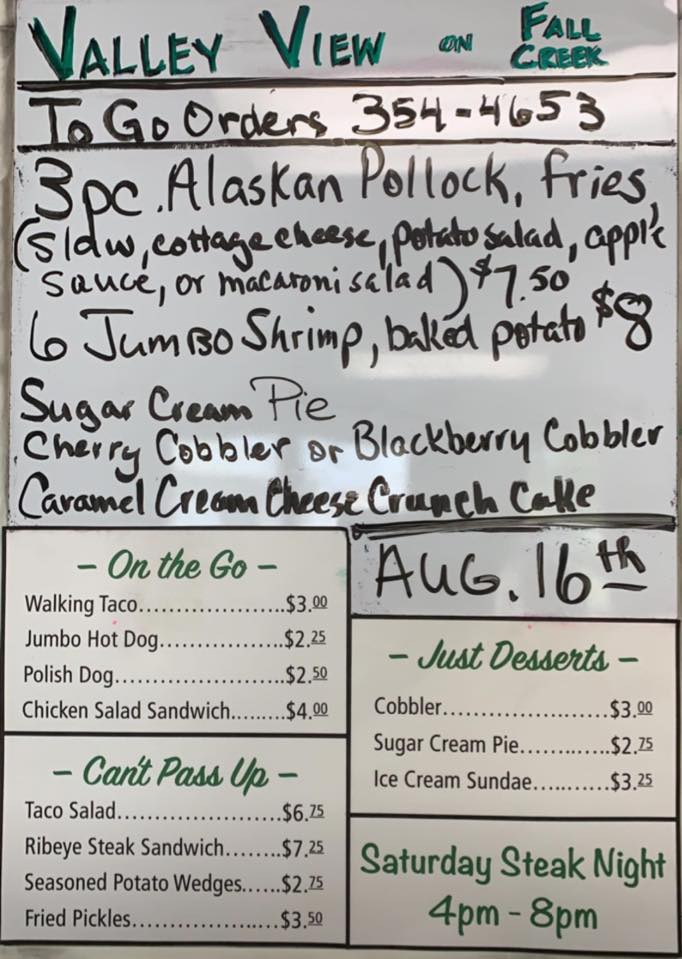 VALLEY VIEW ON FALL CREEK
To Go Orders 354-4653
3pc. Alaskan Pollock, fries,
(slaw, cottage cheese, potato salad, apple
sauce, or macaroni salad) $7.50
6 Jumbo Shrimp, baked potato $8
Sugar Cream Pie
Cherry Cobbler or Blackberry Cobbler
Caramel Cream Cheese Crunch Cake
AUG. 16th
– On the Go –
Walking Taco.....................$3.00
Jumbo Hot Dog.................$2.25
Polish Dog.........................$2.50
Chicken Salad Sandwich.........$4.00
– Can't Pass Up –
Taco Salad.........................$6.75
Ribeye Steak Sandwich.......$7.25
Seasoned Potato Wedges......$2.75
Fried Pickles.......................$3.50
– Just Desserts –
Cobbler.........................$3.00
Sugar Cream Pie.............$2.75
Ice Cream Sundae............$3.25
Saturday Steak Night
4pm - 8pm